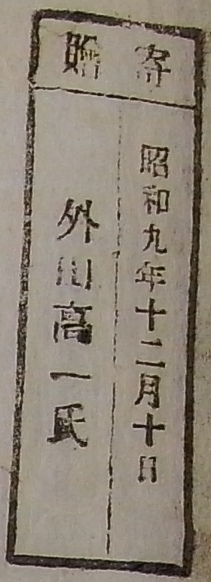 寄贈
昭和九年十二月十日
外川高一氏